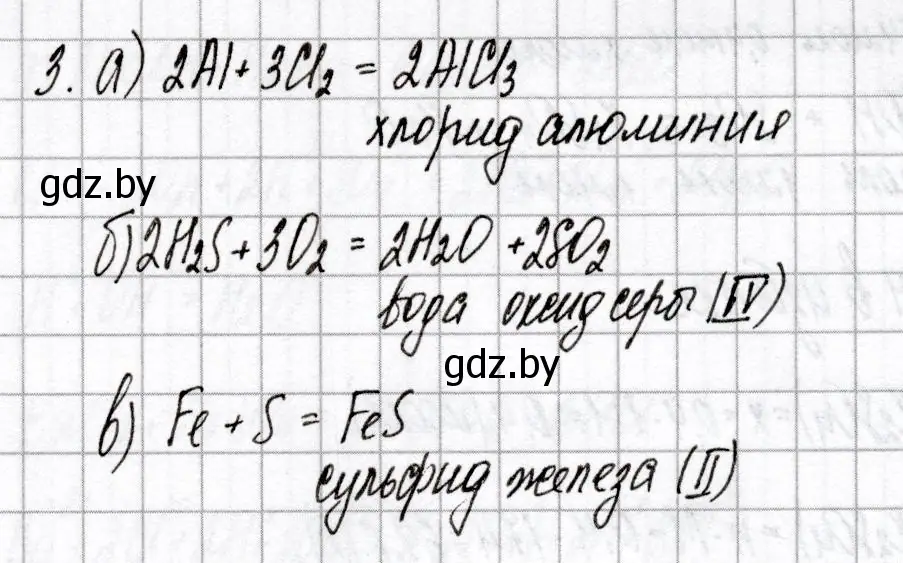 3. а) 2Al + 3Cl₂ = 2AlCl₃
хлорид алюминия
gdz.by
б) 2H₂S + 3O₂ = 2H₂O + 2SO₂
вода оксид серы (IV)
gdz.by
в) Fe + S = FeS
сульфид железа (II)